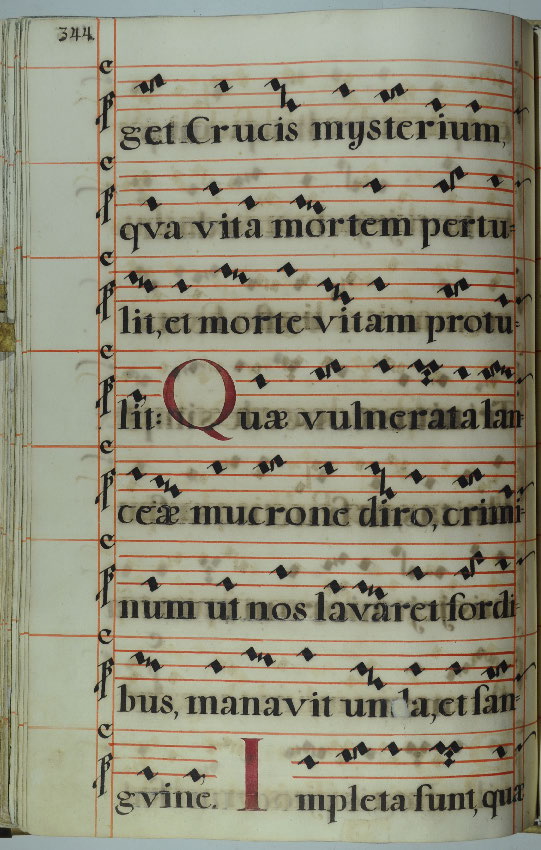 344.
get Crucis mysterium,
qva vita mortem pertu-
lit, et morte vitam protu-
lit: Quæ vulnerata lan-
ceæ mucrone diro, crimi-
num ut nos lavaret sordi-
bus, manavit unda, et san-
gvine. Impleta sunt, quæ